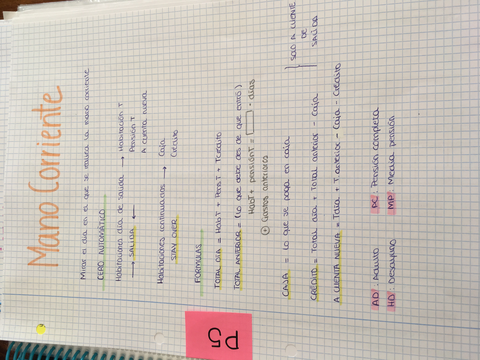 Mano Corriente
Mirar el día en el que se realiza la mano corriente
CERO AUTOMÁTICO
Habitaciones día de salida → Habitación T
Pensión T
A cuenta nueva
→ SALIDA ←
Habitaciones continuación → Caja
Crédito
STAY OVER
FORMULAS
TOTAL DÍA = Hab T + Pens T + T crédito
TOTAL ANTERIOR = (lo que debe des de que entró)
Hab T + pensión T = · días
⊕ Gastos anteriores
CAJA = lo que se paga en caja
CRÉDITO = Total día + Total anterior - Caja
SOLO A CLIENTE
DE
SALIDA
A CUENTA NUEVA = T día + T anterior - Caja - Crédito
AD: Adulto PC: Pensión completa
HD: Desayuno MP: Media pensión
P5